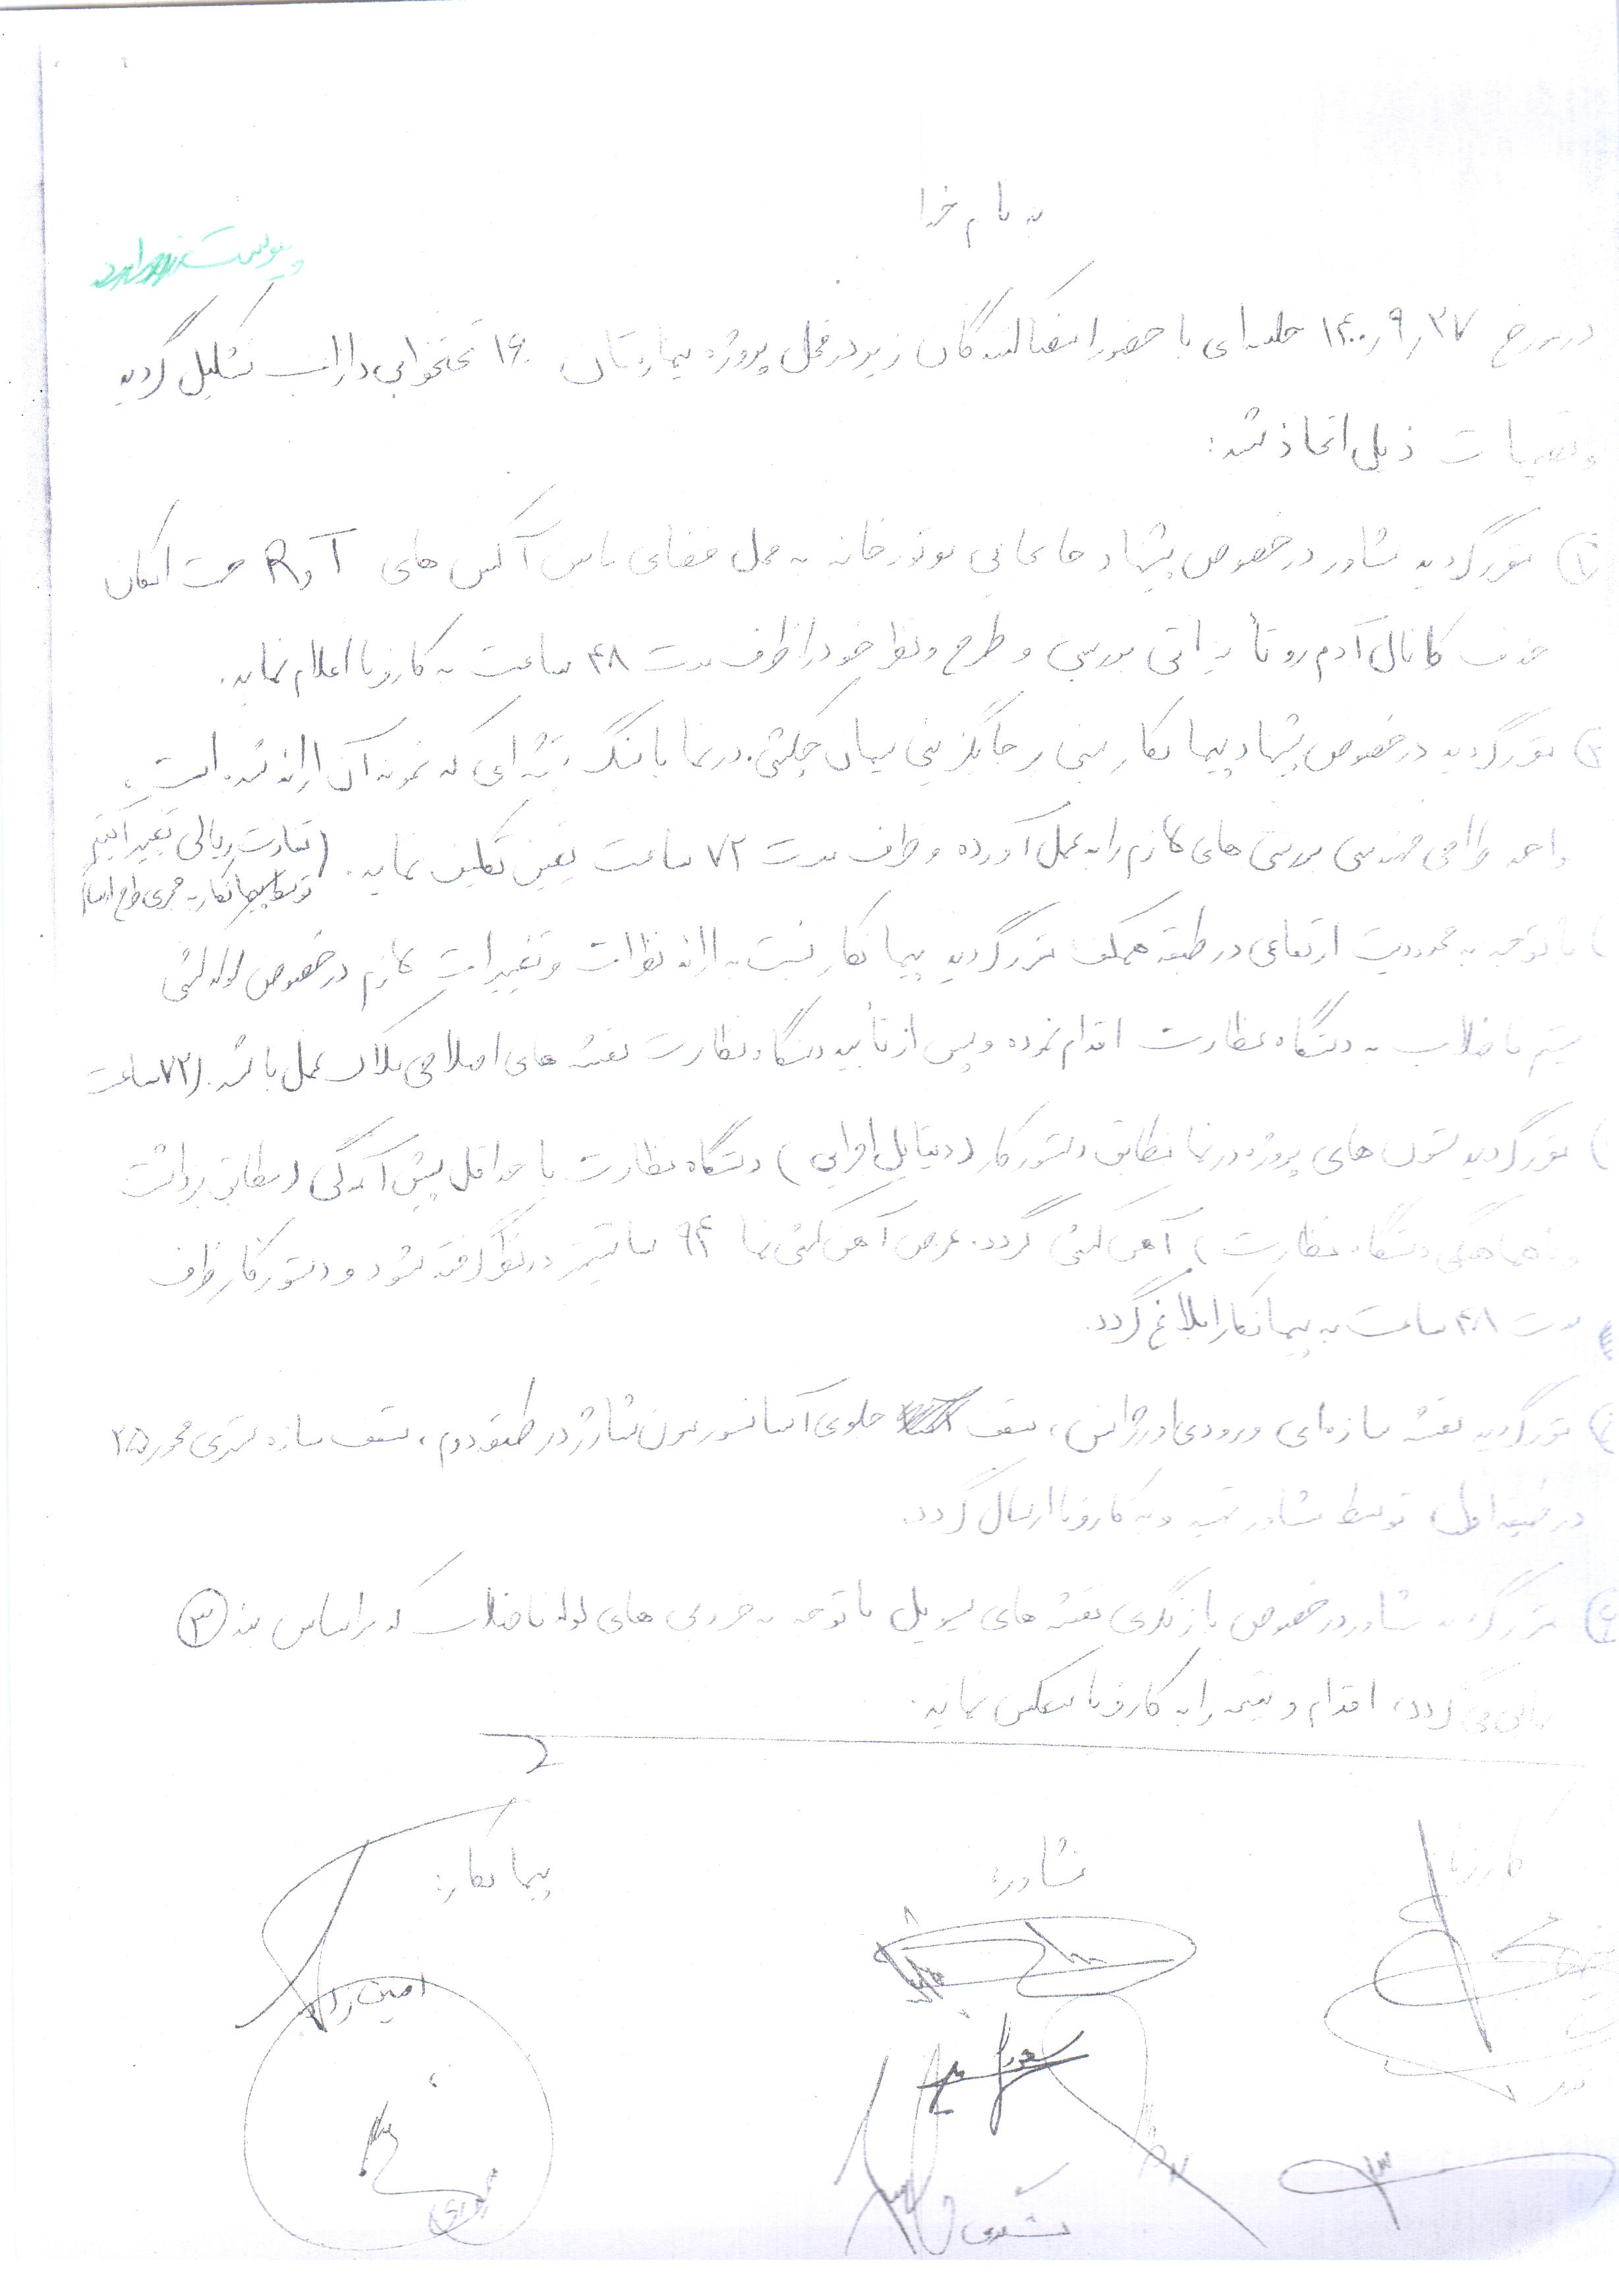 به نام خدا
پیوست ندارد
در مورخ ۱۴۰۰/۹/۲۷ جلسه‌ای با حضور امضاکنندگان زیر در محل پروژه بیمارستان ۱۶۰ تختخوابی داراب تشکیل گردید
و تصمیمات ذیل اتخاذ شد:
① مقرر گردید مشاور در خصوص پیشنهاد جابجایی موتورخانه به محل فضای مابین آکس های T و R جهت امکان
حذف کانال آدم رو تأسیساتی بررسی و طرح و نظر خود را ظرف مدت ۴۸ ساعت به کارفرما اعلام نماید.
② مقرر گردید در خصوص پیشنهاد پیمانکار مبنی بر جایگزینی سیمان چکشی در نما با سنگ تیشه ای که نمونه آن ارائه شده است،
واحد طراحی مهندسی بررسی های لازم را به عمل آورده و ظرف مدت ۷۲ ساعت تعیین تکلیف نماید. (تفاوت ریالی تغییر آیتم
توسط پیمانکار به مجری طرح ارسال
) با توجه به محدودیت ارتفاعی در طبقه همکف مقرر گردید پیمانکار نسبت به ارائه نظرات و تغییرات لازم در خصوص لوله کشی
سیستم فاضلاب به دستگاه نظارت اقدام نموده و پس از تأیید دستگاه نظارت نقشه های اصلاحی ملاک عمل باشد. (۷۲ ساعت
) مقرر گردید ستون های پروژه در نما مطابق دستور کار (دیتایل اجرایی) دستگاه نظارت با حداقل پیش آمدگی (مطابق برداشت
و هماهنگی دستگاه نظارت) آهن کشی گردد. عرض آهن کشی نما ۹۴ سانتیمتر در نظر گرفته شود و دستور کار ظرف
مدت ۴۸ ساعت به پیمانکار ابلاغ گردد.
مقرر گردید نقشه سازه‌ای ورودی اورژانس، سقف جلوی آسانسور مونشارژ در طبقه دوم، سقف سازه متری محور ۲۵
در طبقه اول، توسط مشاور تهیه و به کارفرما ارسال گردد.
مقرر گردید مشاور در خصوص بازنگری نقشه های سیویل با توجه به خروجی های لوله فاضلاب که بر اساس بند ③
می گردد، اقدام و نتیجه را به کارفرما منعکس نماید.
کارفرما: مشاور: پیمانکار: